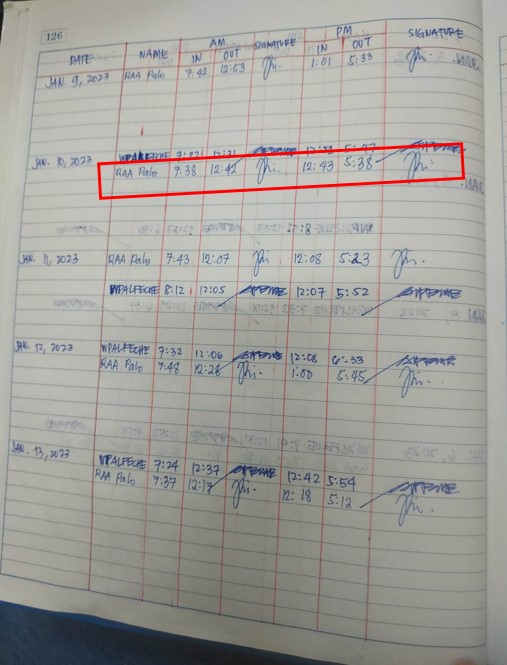 126
AM PM
DATE NAME IN OUT SIGNATURE IN OUT SIGNATURE
JAN. 9, 2023 RAA Palo 7:42 12:53 1:01 5:33
JAN. 10, 2023 WPALFECHE 7:27 12:31 5:47
RAA Palo 7:38 12:42 12:43 5:38
JAN. 11, 2023 RAA Palo 7:43 12:07 12:08 5:23
WPALFECHE 8:12 12:05 12:07 5:52
JAN. 12, 2023 WPALFECHE 7:32 12:06 12:08 6:33
RAA Palo 7:48 12:28 1:00 5:45
JAN. 13, 2023 WPALFECHE 7:24 12:37 12:42 5:54
RAA Palo 7:37 12:17 12:18 5:12